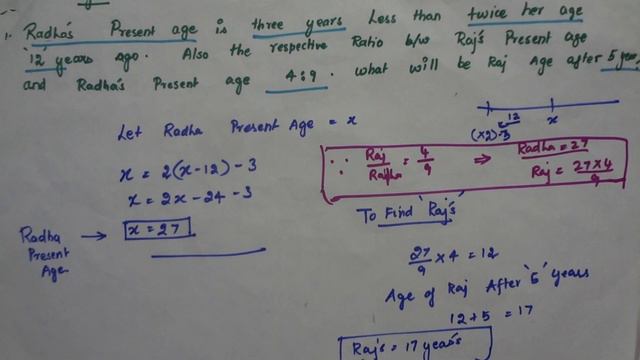 1. Radha's Present age is three years Less than twice her age
'12' years ago. Also the respective Ratio b/w Raj's Present age
and Radha's Present age 4:9. what will be Raj Age after 5 year.
Let Radha Present Age = x
x = 2(x-12) - 3
x = 2x - 24 - 3
Radha Present Age → x = 27
12
(x2)-3 x
∵ Raj/Radha = 4/9 ⇒ Radha = 27
Raj = 27×4/9
To Find 'Raj's'
27/9 × 4 = 12
Age of Raj After '5' years
12 + 5 = 17
Raj's = 17 year's